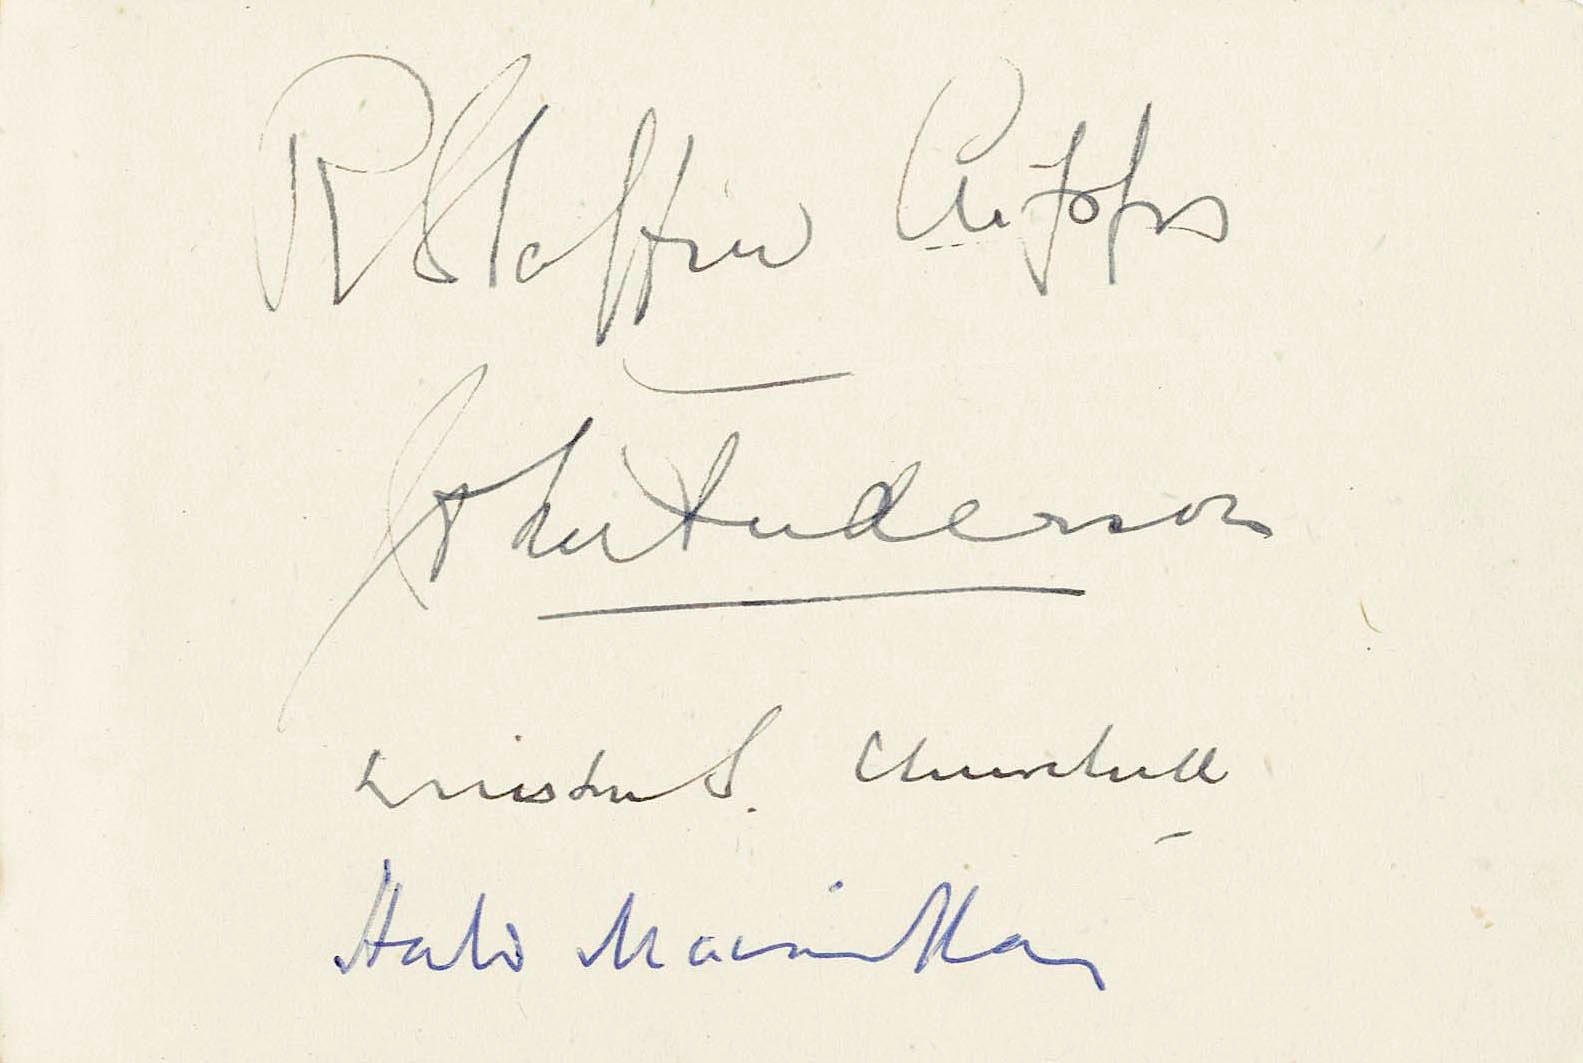 R Stafford Cripps
John Anderson
Winston S. Churchill
Harold Macmillan